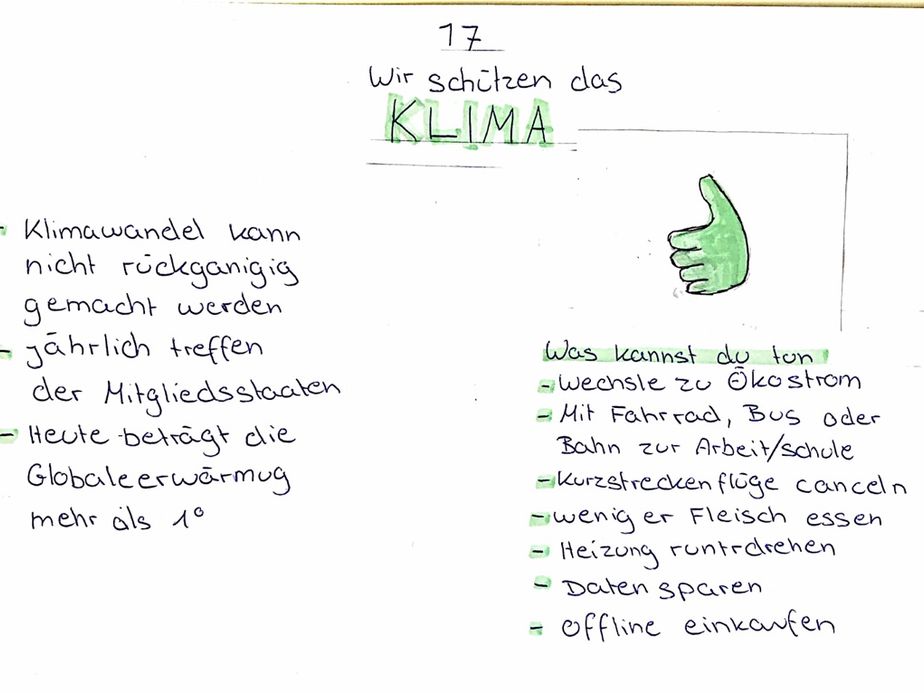 17
Wir schützen das
KLIMA
- Klimawandel kann
nicht rückganigig
gemacht werden
- jährlich treffen
der Mitgliedsstaaten
- Heute beträgt die
Globaleerwärmug
mehr als 1°
Was kannst du tun!
- Wechsle zu Ökostrom
- Mit Fahrrad, Bus oder
Bahn zur Arbeit/schule
- Kurzstreckenflüge canceln
- weniger Fleisch essen
- Heizung runtrdrehen
- Daten sparen
- Offline einkaufen